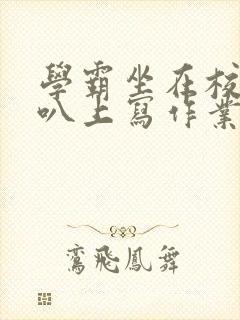 學霸坐在校
叭上寫作業
鸞飛鳳舞